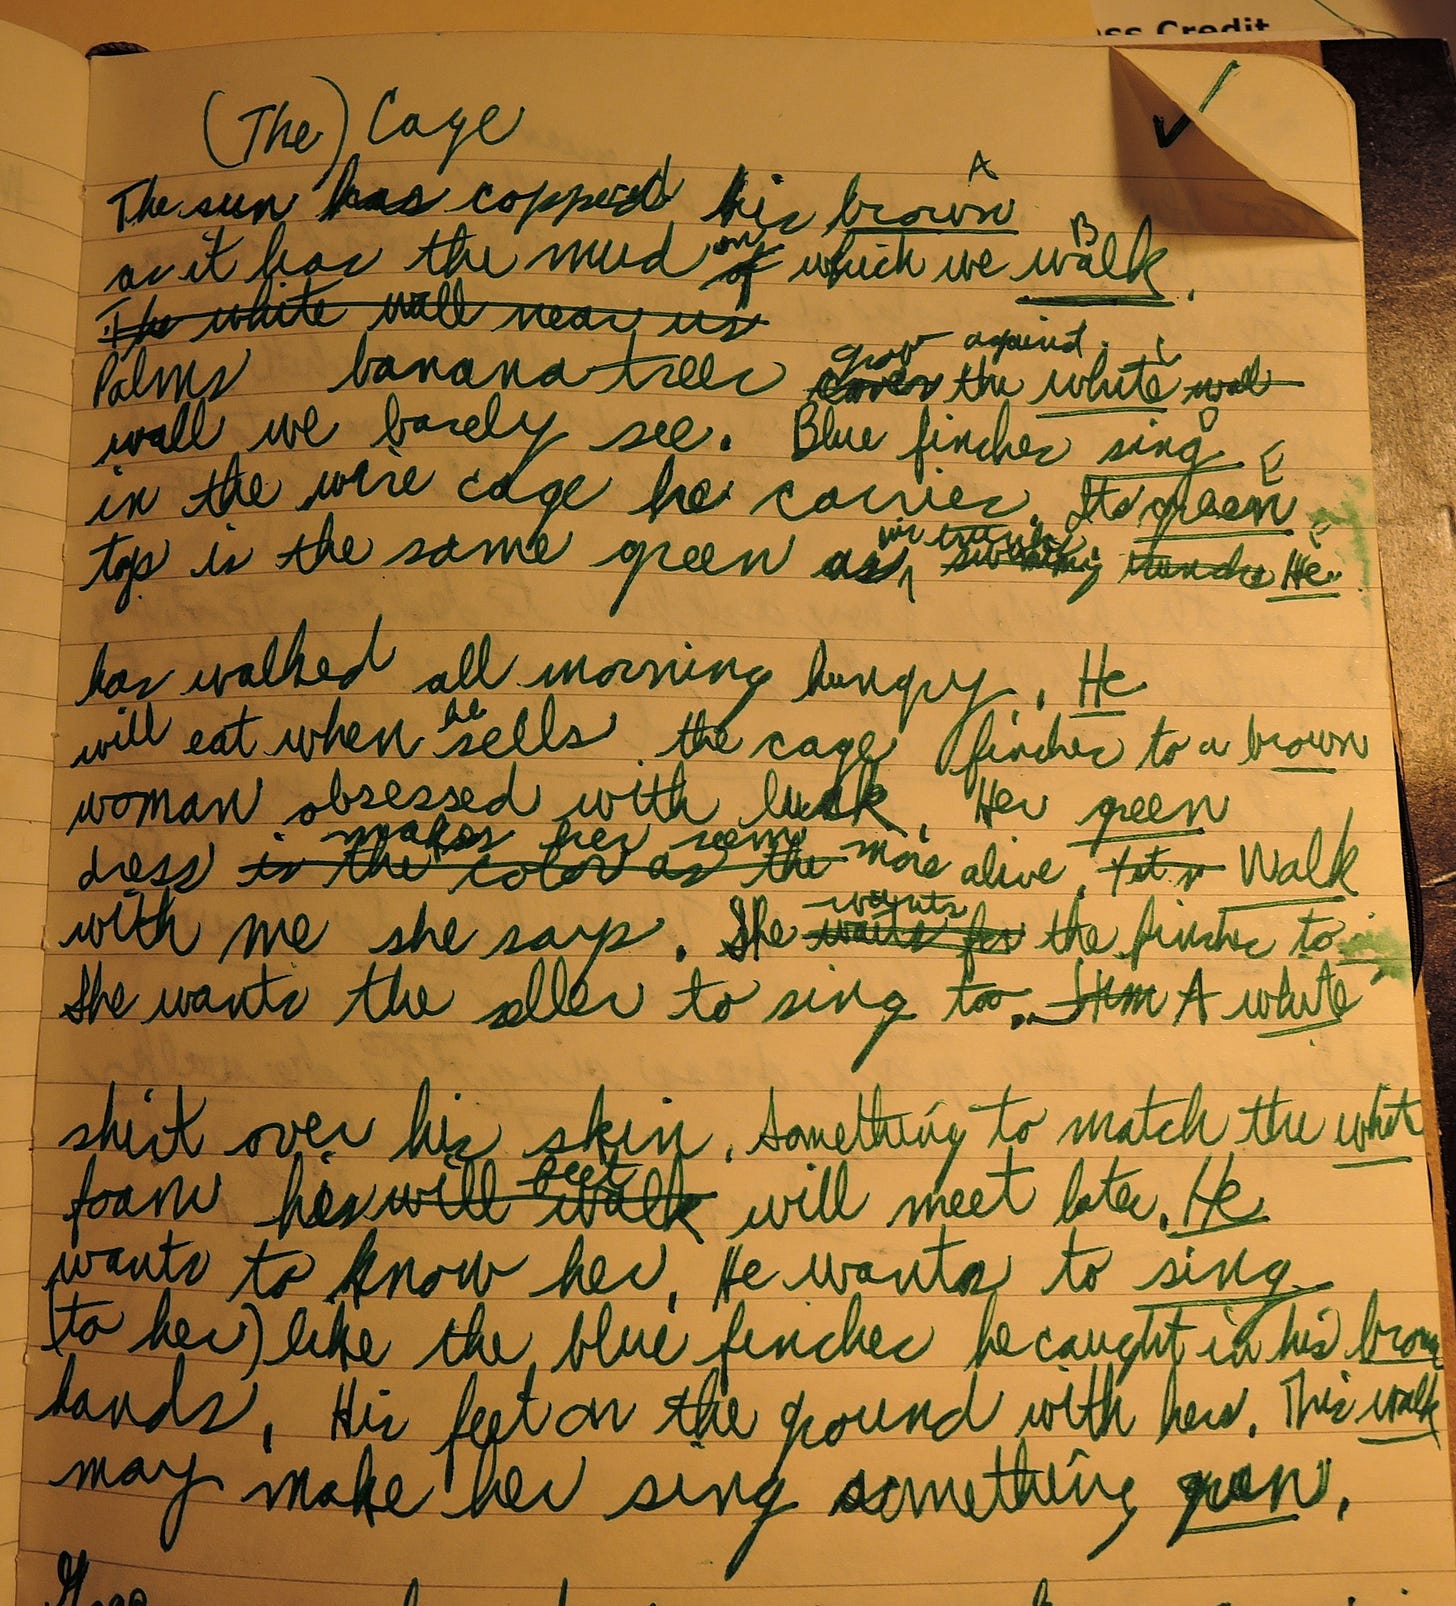 ss Credit
(The) Cage
A
The sun has coppered his brown
B
as it has the mud on of which we walk.
The white wall near us
grow against C
Palms banana trees cover the white wall
D
wall we barely see. Blue finches sing
E
in the wire cage he carries. Its green
F
top is the same green as He
has walked all morning hungry. He
will eat when he sells the cage finches to a brown
woman obsessed with luck. Her green
makes her seem
dress is the color as the more alive. Walk
wants
with me she says. She waits for the finches to
She wants the seller to sing too. A white
shirt over his skin. Something to match the whit
feet
foam his will walk will meet later. He
wants to know her. He wants to sing
(to her) like the blue finches he caught in his brown
hands. His feet on the ground with hers. This walk
may make her sing something green.